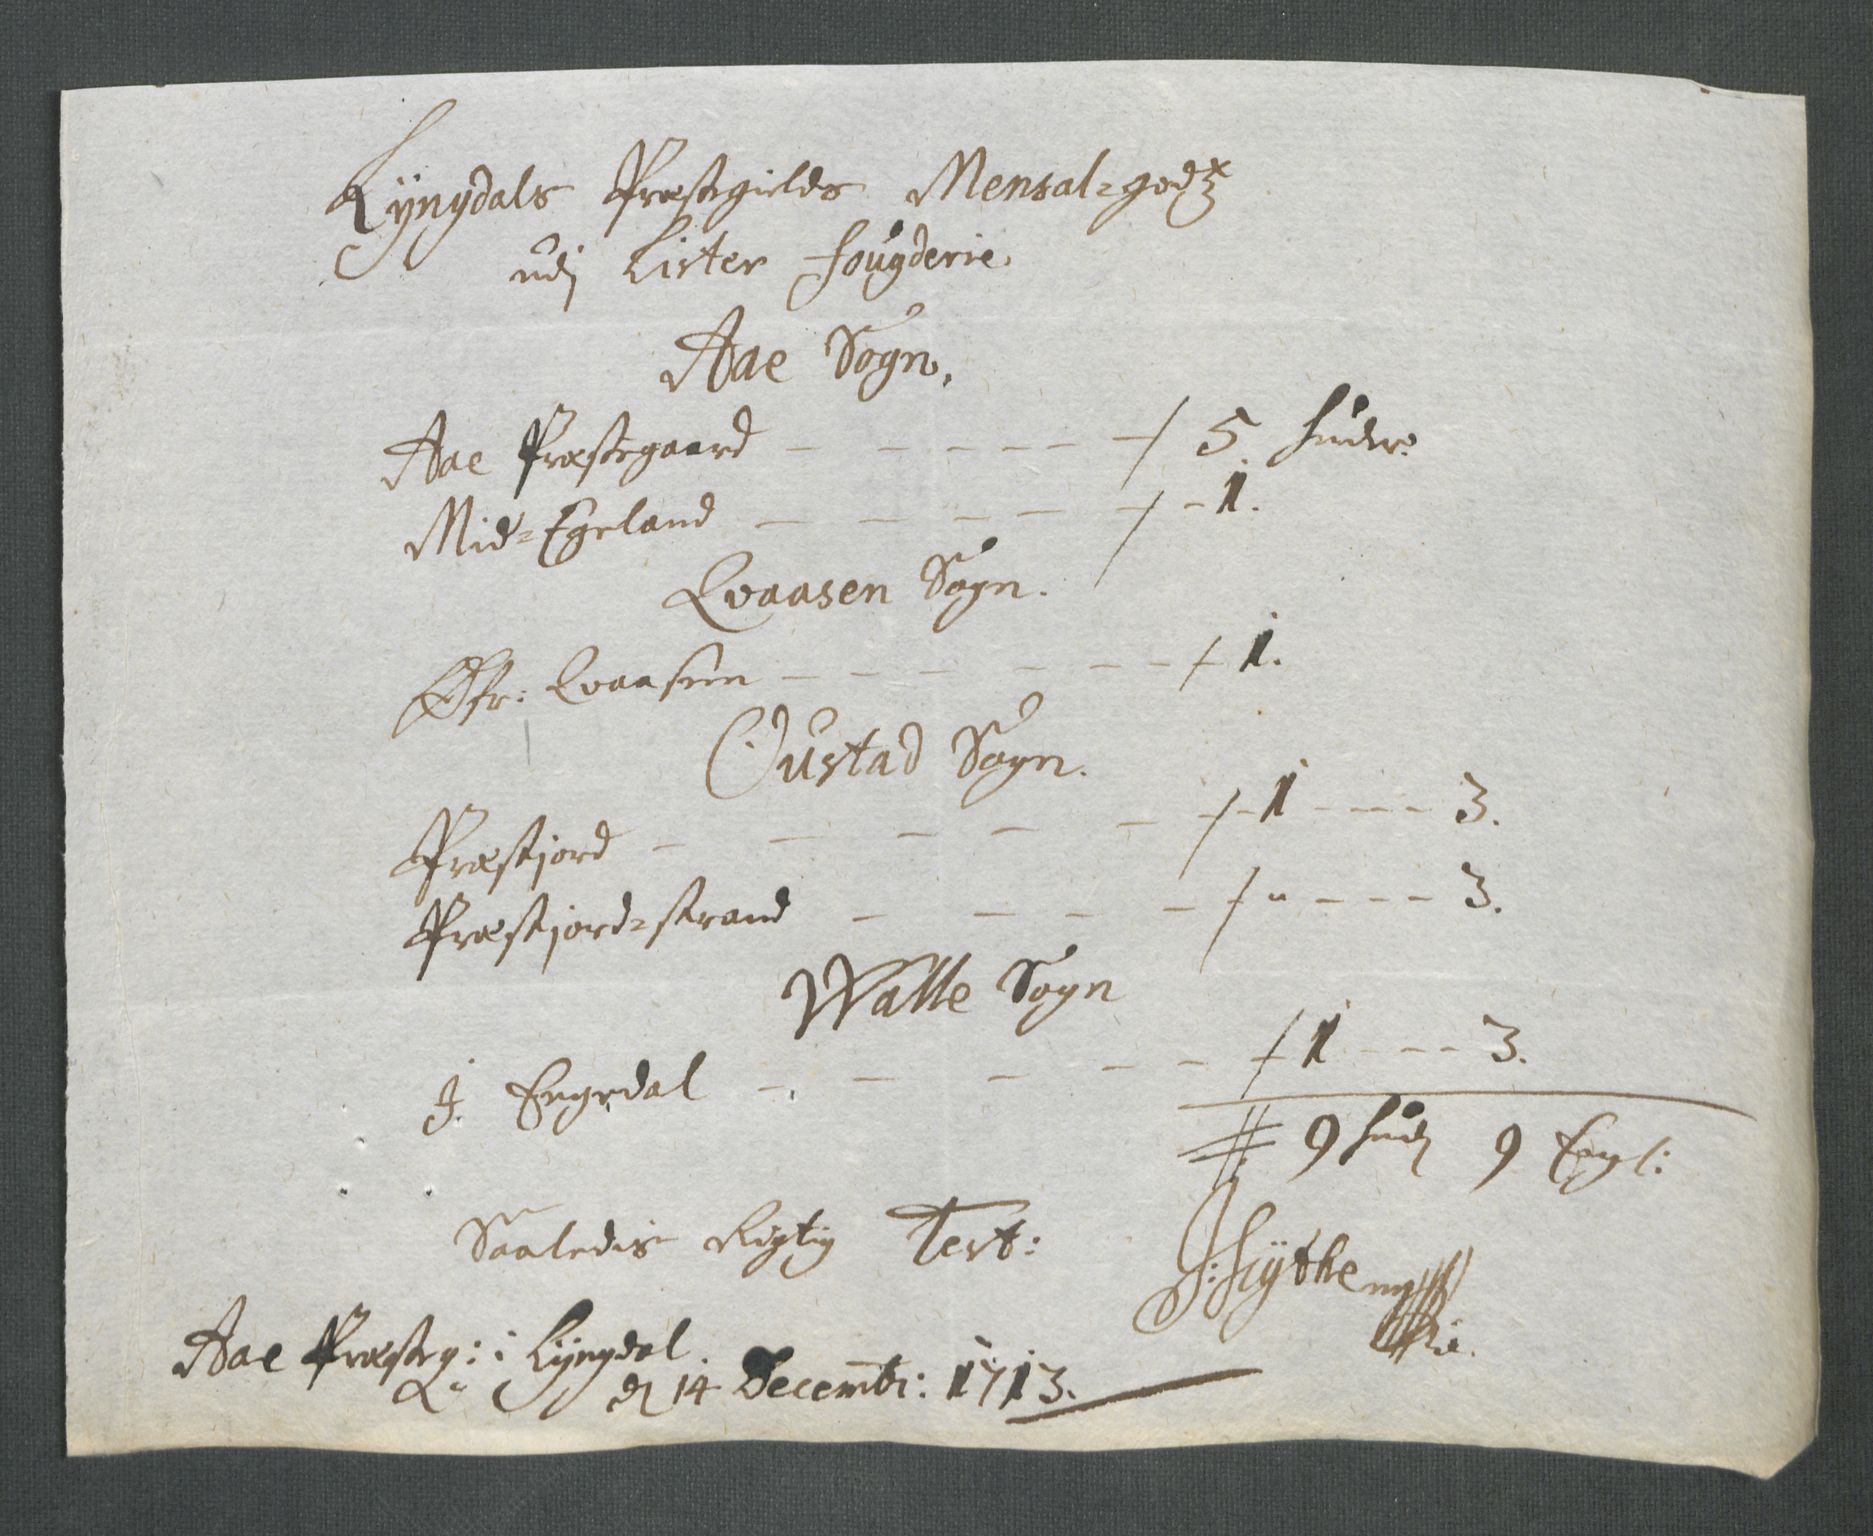 Lyngdals Præstegields Mensal-godtz
udj Lister fougderie.
Aae Sogn.
Aae Præstegaard - - - - - - 5. huder.
Mid-Egeland - - - - - - 1.
Qvaasen Sogn.
Øfr: Qvaasen - - - - - - - 1.
Oustad Sogn.
Præstjord - - - - - - 1 - - - - 3.
Præstjord-strand - - - - - " - - - - 3.
Walle Sogn
J. Eegedal - - - - - - 1 - - - - 3.
9 hudr 9 Engl:
Saaledis Rigtig Test:
J: Hythe
Aae Præsteg: i Lyngdal
d 14 Decembr: 1713.